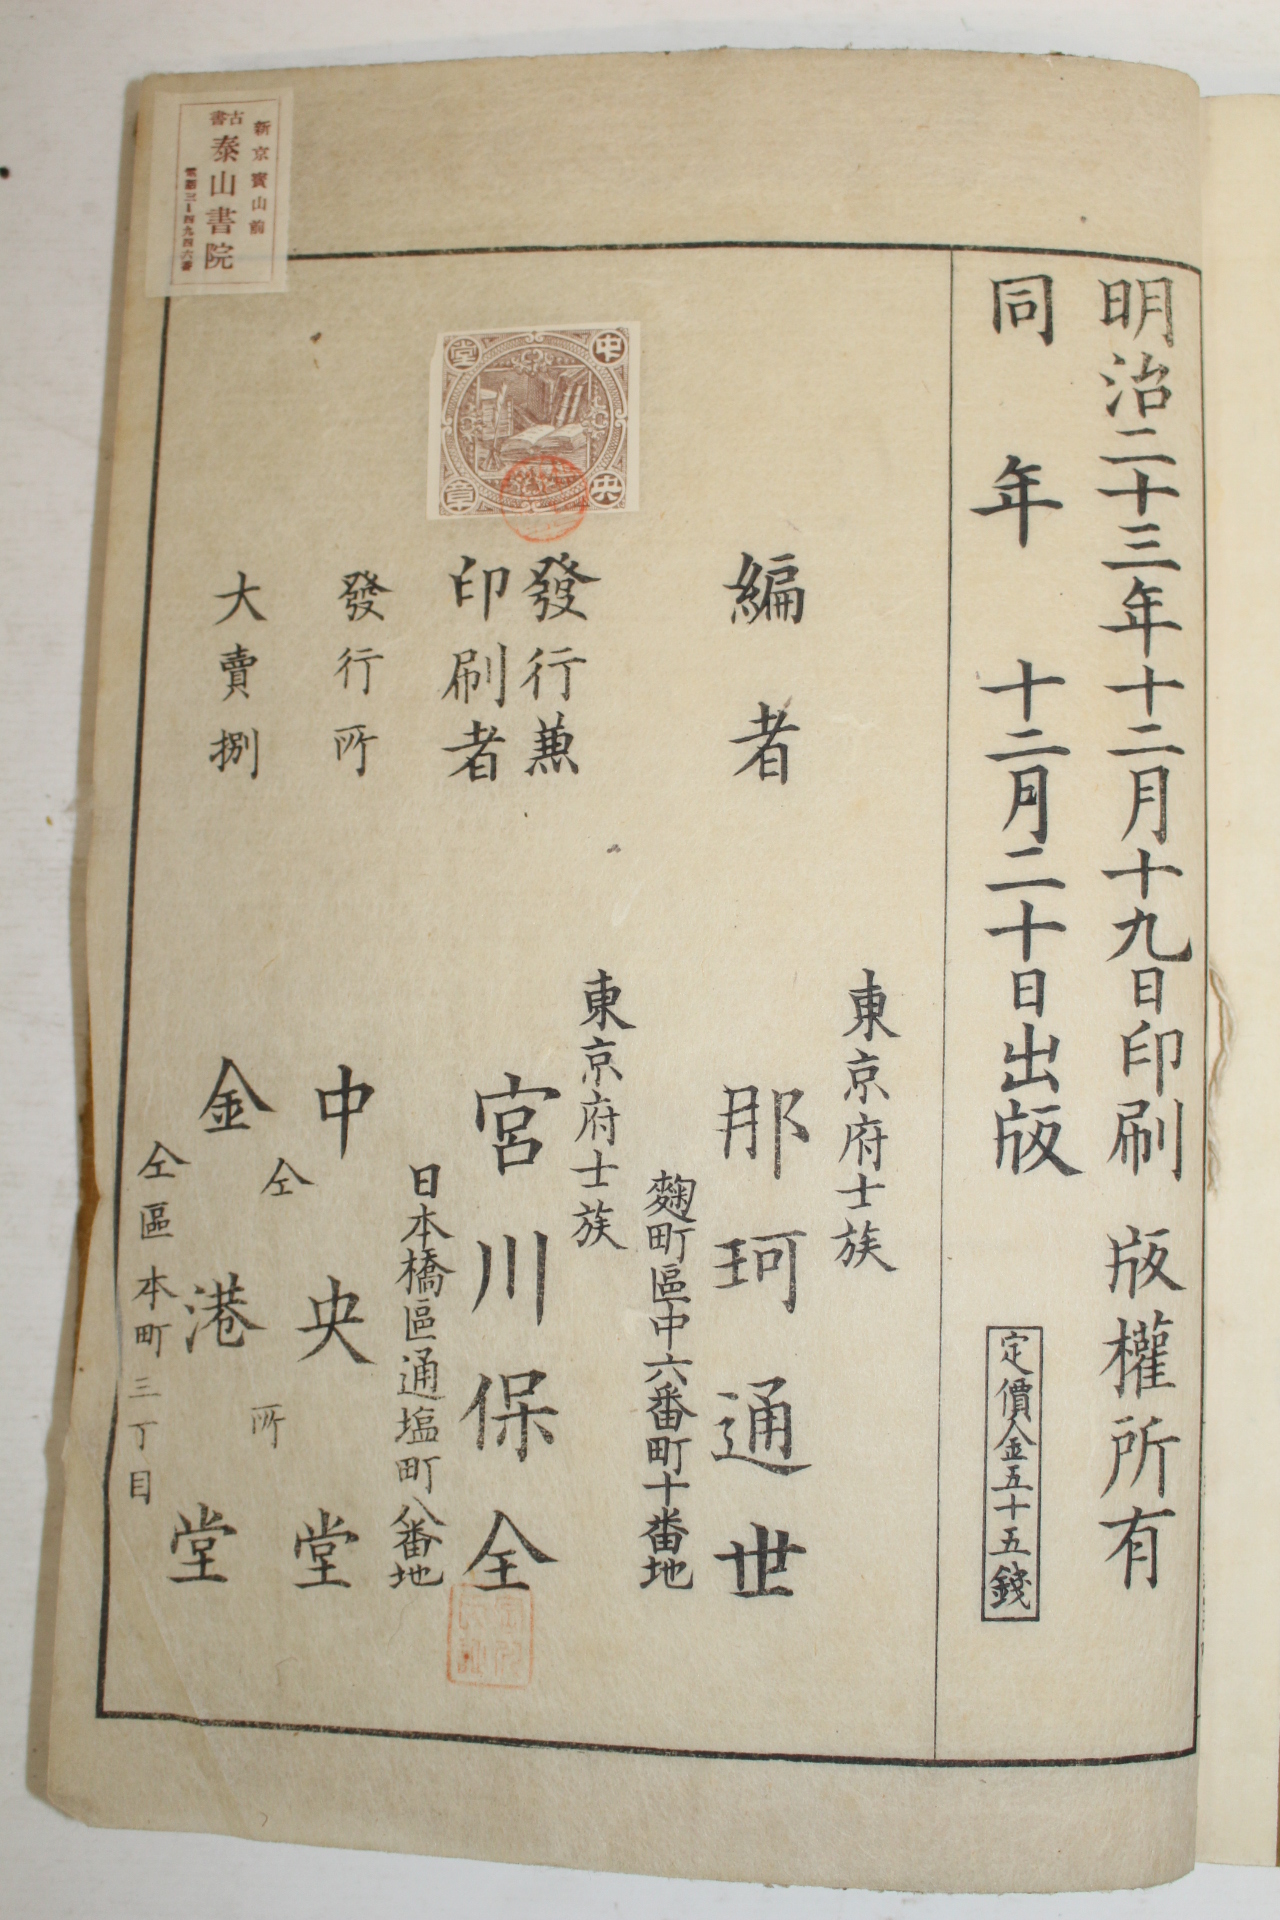 明治二十三年十二月十九日印刷 版權所有
同年 十二月二十日出版
定價金五十五錢
東京府士族
編者 那珂通世
麴町區中六番町十番地
東京府士族
發行兼
印刷者 宮川保全
日本橋區通塩町八番地
發行所 中央堂
仝 所
大賣捌 金港堂
仝區本町三丁目
中央堂章
新京寶山前
古書
泰山書院
電話三―四九四六番